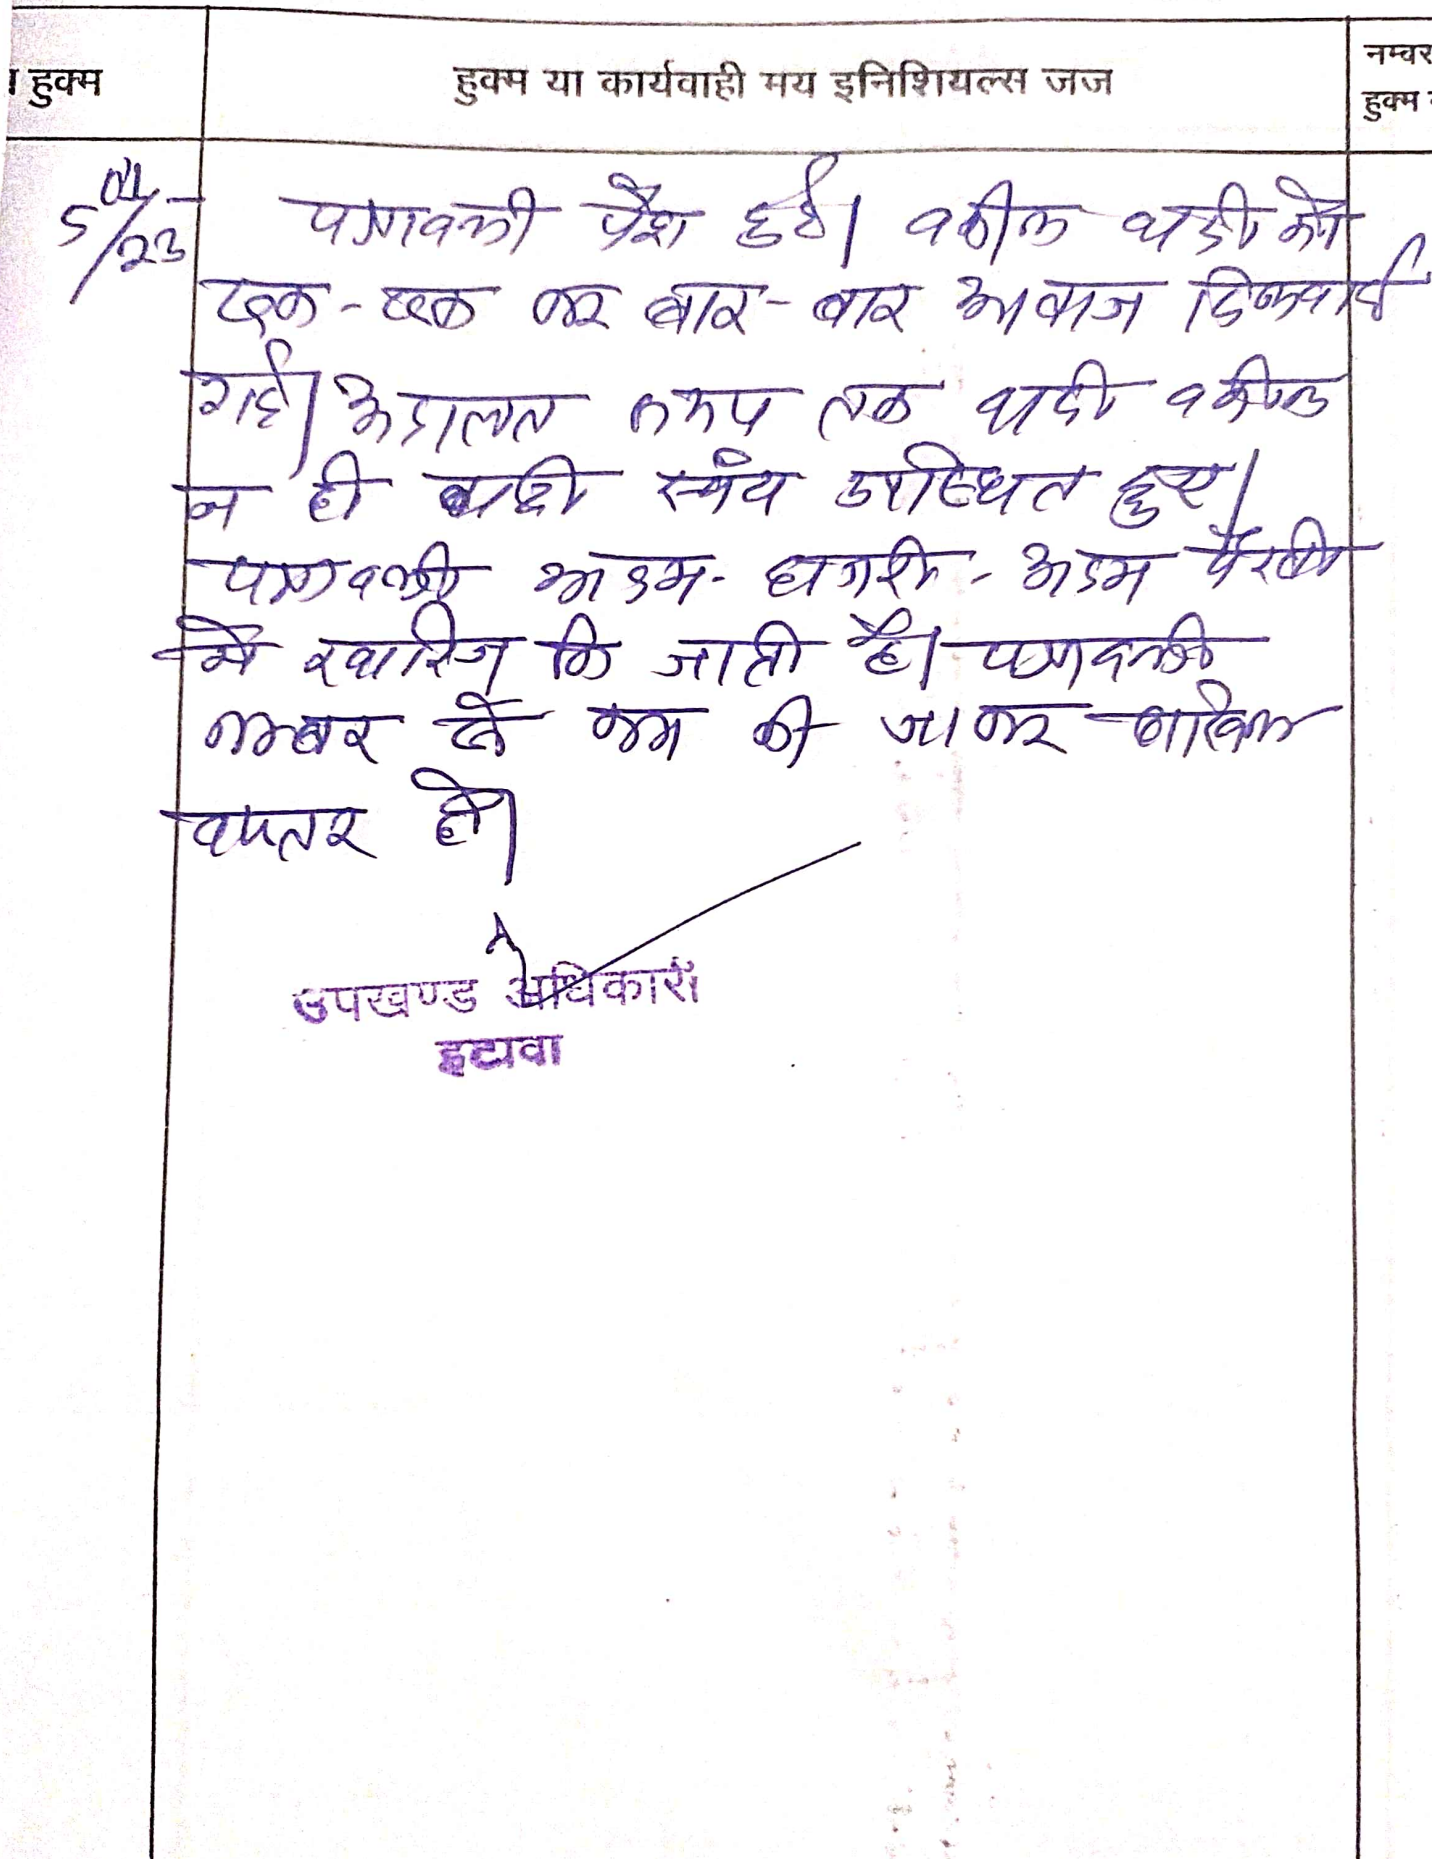 हुक्म
हुक्म या कार्यवाही मय इनिशियल्स जज
नम्बर
हुक्म
5/01/23
पत्रावली पेश हुई। वकील वादी को
एक-एक कर बार-बार आवाज दिलवाई
गई। अदालत समय तक वादी वकील
न ही वादी स्वंय उपस्थित हुए।
पत्रावली अदम-हाजरी-अदम पैरवी
में खारिज कि जाती है। पत्रावली
नम्बर से कम की जाकर दाखिल
दफ्तर हो।
उपखण्ड अधिकारी
इटावा